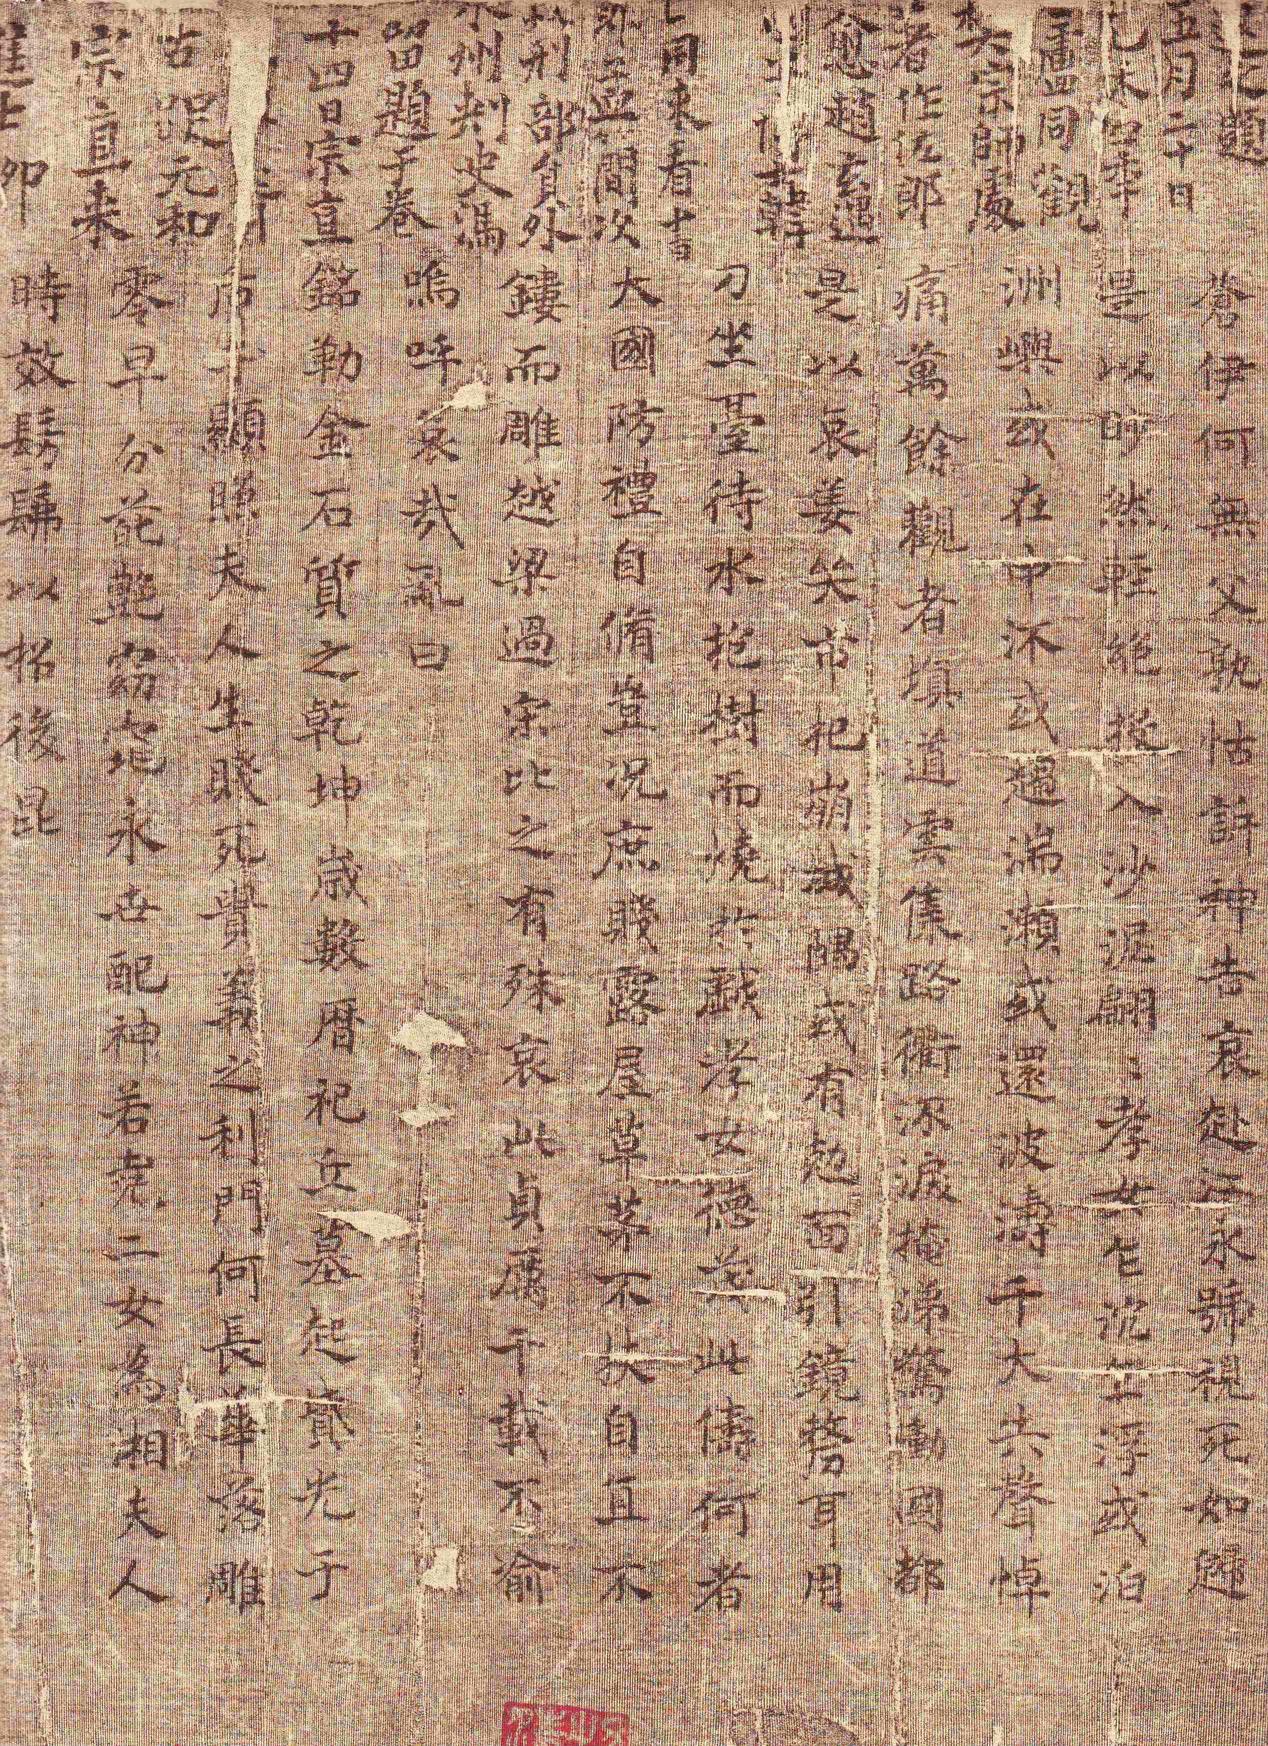 題
五月二十日
四年
同觀
大宗師處
著作佐郎
愈趙玄遇
韓
同來看
孟簡次
刑部員外
州刺史馮
留題于卷
十四日宗直
元和
宗直来
蒼伊何無父孰怙訴神告哀赴江永號視死如歸
是以眇然輕絕投入沙泥翩〻孝女乍沉乍浮或泊
洲嶼或在中流或趨湍瀨或還波濤千夫共聲悼
痛萬餘觀者填道雲集路衢流淚掩涕驚慟國都
是以哀姜哭市杞崩城隅或有剋面引鏡剺耳用
刀坐臺待水抱樹而燒於戲孝女德茂此儔何者
大國防禮自脩豈況庶賤露屋草茅不扶自直不
鏤而雕越梁過宋比之有殊哀此貞厲千載不渝
嗚呼哀哉亂曰
銘勒金石質之乾坤歲數曆祀丘墓起墳光于
后土顯照夫人生賤死貴義之利門何長華落雕
零早分葩艷窈窕永世配神若堯二女為湘夫人
時效髣髴以招後昆